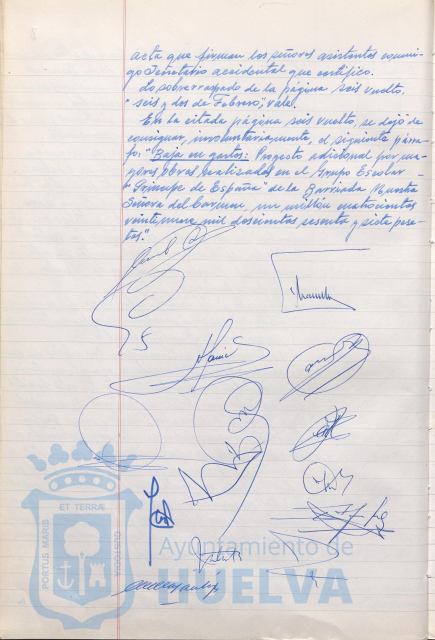 acta que firman los señores asistentes conmi-
go Secretario accidental que certifico.
Lo sobrerraspado de la página seis vuelto,
"seis y dos de Febrero", vale.
En la citada página seis vuelto, se dejó de
consignar, involuntariamente, el siguiente párra-
fo: "Baja en gastos: Proyecto adicional por ma-
yores obras realizadas en el Grupo Escolar -
"Príncipe de España" de la Barriada Nuestra
Señora del Carmen, un millón cuatrocientas
veintinueve mil doscientas sesenta y siete pese-
tas."
PORTUS MARIS
ET TERRÆ
CUSTODIA
Ayuntamiento de
HUELVA